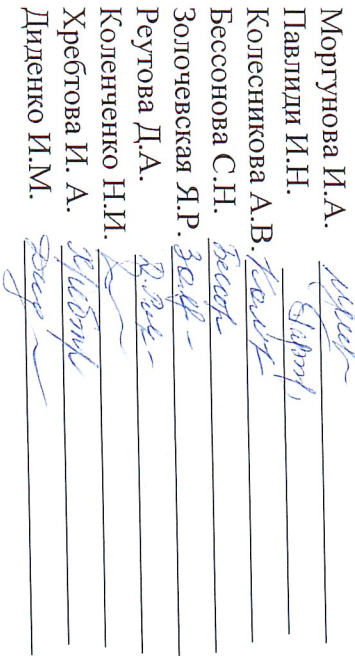 Моргунова И.А.
Павлиди И.Н.
Колесникова А.В.
Бессонова С.Н.
Золочевская Я.Р.
Реутова Д.А.
Коленченко Н.И.
Хребтова И. А.
Диденко И.М.